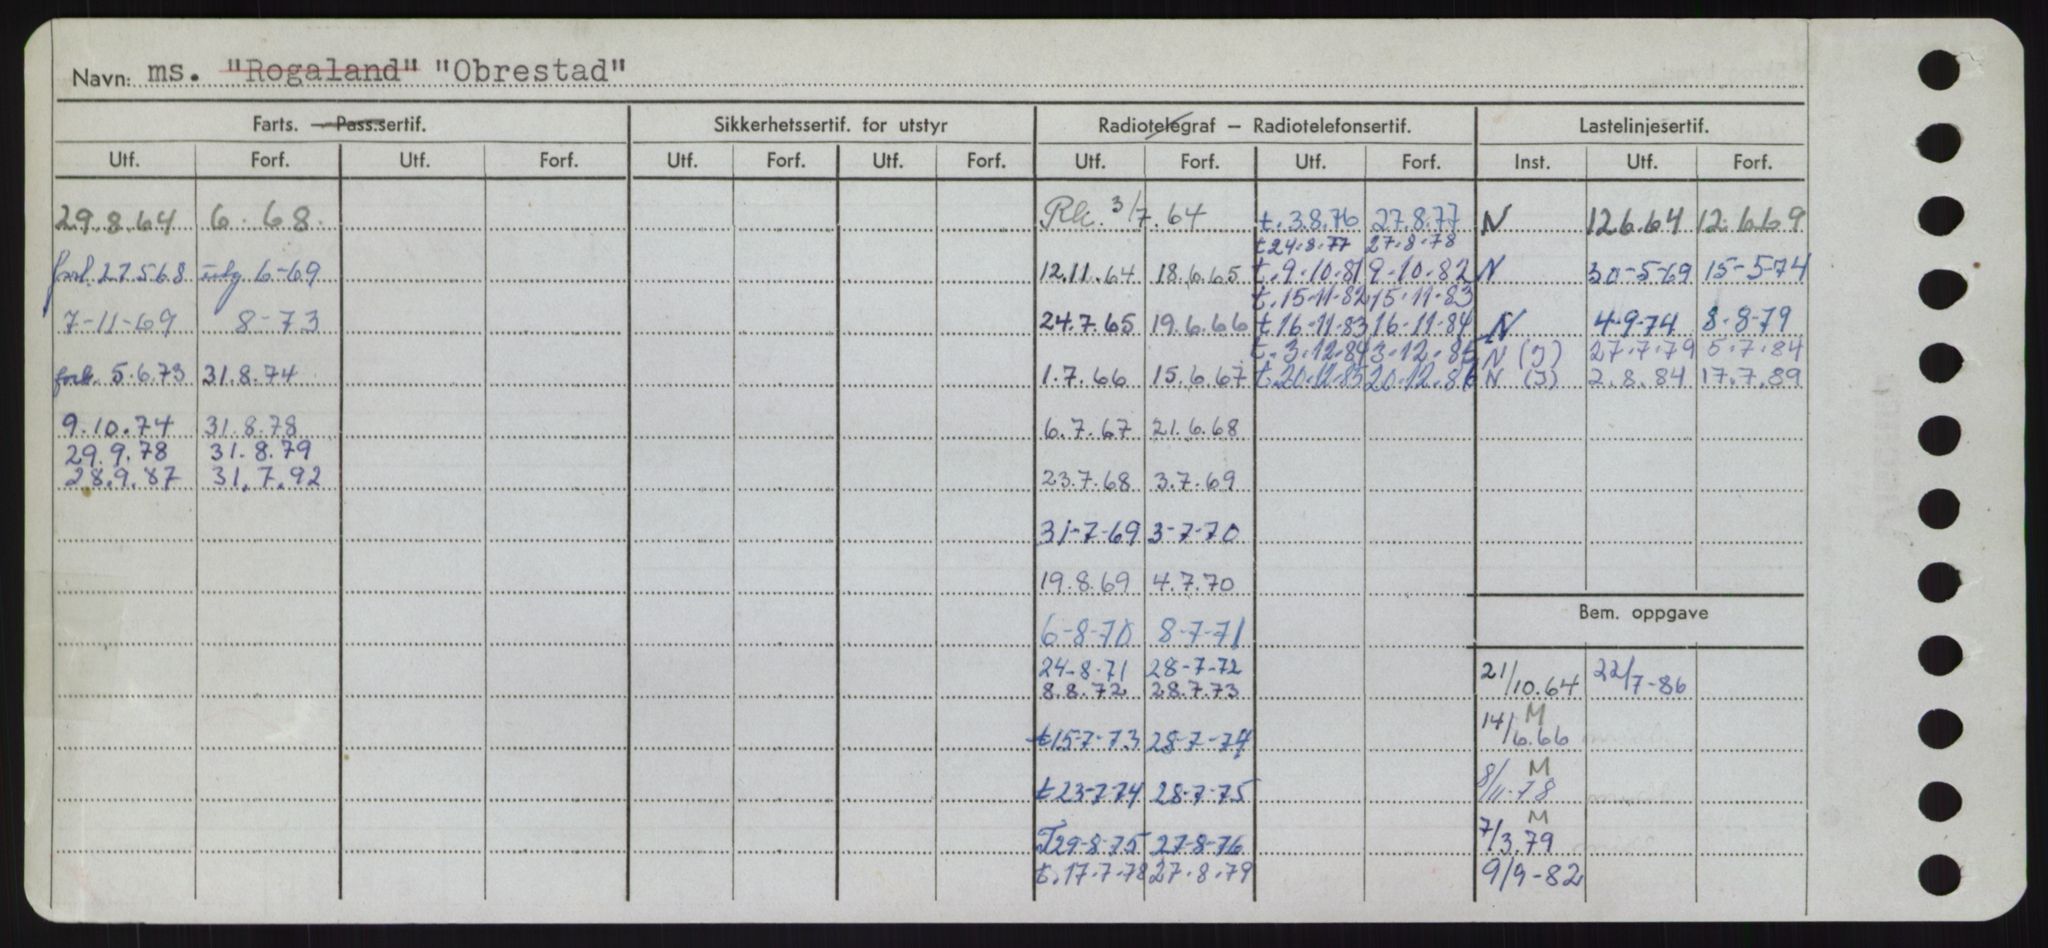 Navn: ms. "Rogaland" "Obrestad"
Farts. — Pass.sertif. Sikkerhetssertif. for utstyr Radiotelegraf – Radiotelefonsertif. Lastelinjesertif.
Utf. Forf. Utf. Forf. Utf. Forf. Utf. Forf. Utf. Forf. Utf. Forf. Inst. Utf. Forf.
29.8.64 6. 68. Rk. 3/7.64 t. 3.8.76 27.8.77 N 12.6.64 12.6.69
t 24.8.77 27.8.78
forl. 27.5.68 utg 6-69 12.11.64 18.6.65 t. 9.10.81 9.10.82 N 30-5-69 15-5-74
t. 15.11.82 15.11.83
7-11-69 8-73 24.7.65 19.6.66 t 16.11.83 16.11.84 N 4-9-74 8-8-79
t. 3.12.84 3.12.85 N (I) 27.7.79 5.7.84
forl. 5.6.73 31.8.74 1.7.66 15.6.67 t. 20.12.85 20.12.86 N (I) 2.8.84 17.7.89
9.10.74 31.8.78 6.7.67 21.6.68
29.9.78 31.8.79
28.9.87 31.7.92 23.7.68 3.7.69
31-7-69 3-7-70
19.8.69 4.7.70
Bem. oppgave
6-8-70 8-7-71
24-8-71 28-7-72 21/10.64 22/7-86
8.8.72 28.7.73
t 15-7-73 28-7-74 14/6.66 M
t 23-7-74 28-7-75 8/11-78 M
T 29-8-75 27-8-76 7/3.79 M
t. 17.7.78 27.8.79 9/9-82